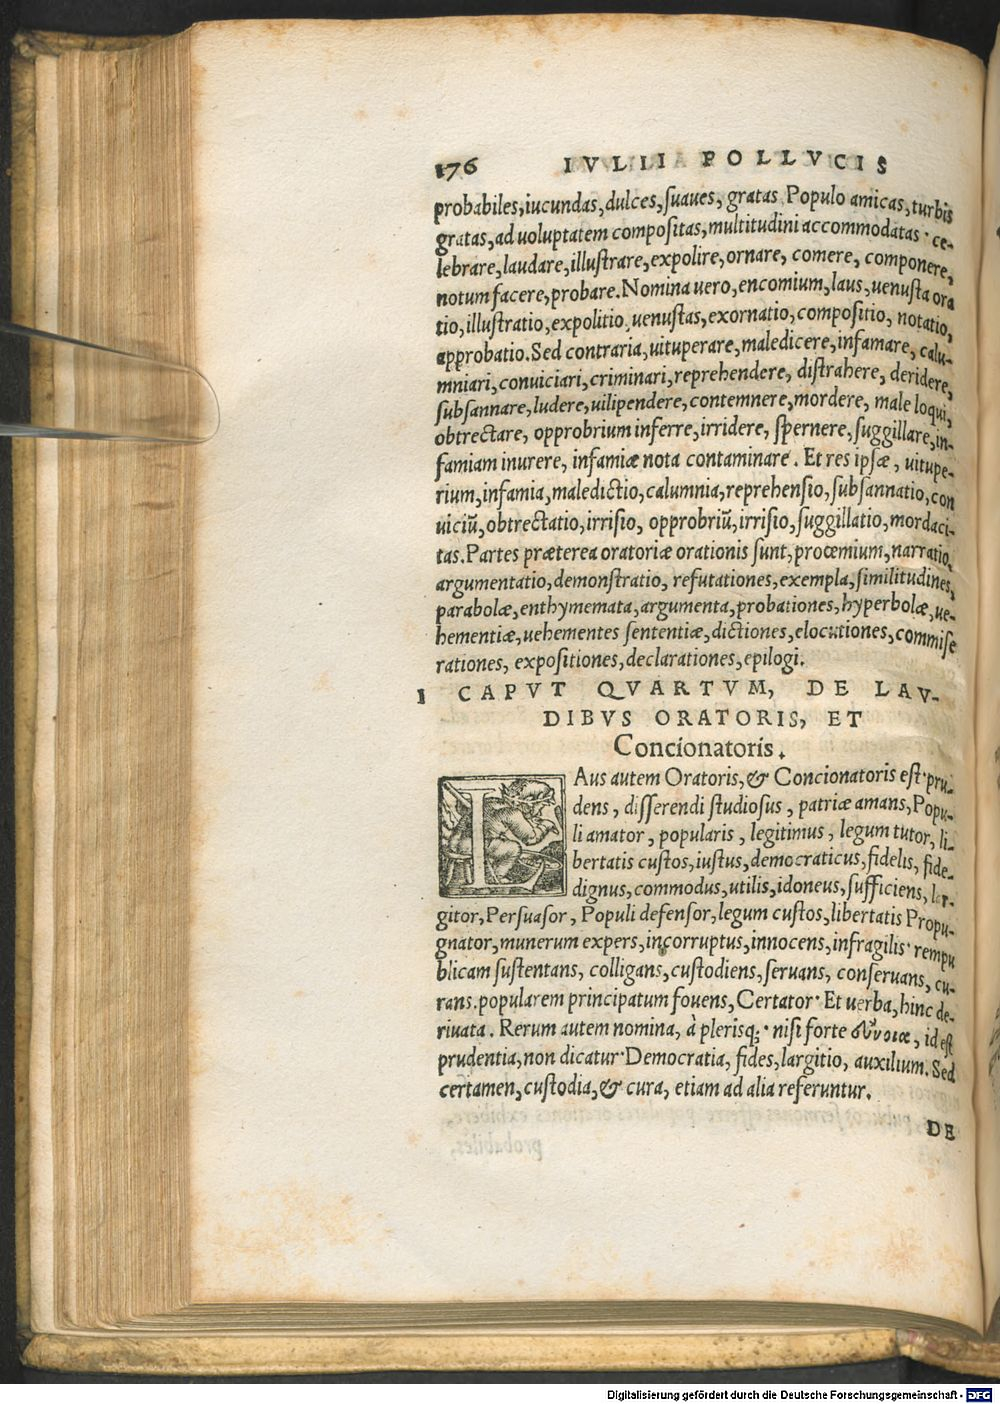 176 IVLII POLLVCIS
probabiles, iucundas, dulces, suaues, gratas Populo amicas, turbis
gratas, ad uoluptatem compositas, multitudini accommodatas· ce-
lebrare, laudare, illustrare, expolire, ornare, comere, componere,
notum facere, probare. Nomina uero, encomium, laus, uenusta ora
tio, illustratio, expolitio, uenustas, exornatio, compositio, notatio,
approbatio. Sed contraria, uituperare, maledicere, infamare, calu-
mniari, conuiciari, criminari, reprehendere, distrahere, deridere,
subsannare, ludere, uilipendere, contemnere, mordere, male loqui,
obtrectare, opprobrium inferre, irridere, spernere, suggillare, in-
famiam inurere, infamiæ nota contaminare. Et res ipsæ, uitupe-
rium, infamia, maledictio, calumnia, reprehensio, subsannatio, con
uiciũ, obtrectatio, irrisio, opprobriũ, irrisio, suggillatio, mordaci-
tas. Partes præterea oratoriæ orationis sunt, proœmium, narratio,
argumentatio, demonstratio, refutationes, exempla, similitudines,
parabolæ, enthymemata, argumenta, probationes, hyperbolæ, ue-
hementiæ, uehementes sententiæ, dictiones, elocutiones, commise
rationes, expositiones, declarationes, epilogi.
1 CAPVT QVARTVM, DE LAV-
DIBVS ORATORIS, ET
Concionatoris.
LAus autem Oratoris, & Concionatoris est· pru-
dens, disserendi studiosus, patriæ amans, Popu-
li amator, popularis, legitimus, legum tutor, li-
bertatis custos, iustus, democraticus, fidelis, fide-
dignus, commodus, utilis, idoneus, sufficiens, lar-
gitor, Persuasor, Populi defensor, legum custos, libertatis Propu-
gnator, munerum expers, incorruptus, innocens, infragilis· rempu
blicam sustentans, colligans, custodiens, seruans, conseruans, cu-
rans. popularem principatum fouens, Certator· Et uerba, hinc de-
riuata. Rerum autem nomina, à plerisq;· nisi forte σύνοια, id est
prudentia, non dicatur· Democratia, fides, largitio, auxilium. Sed
certamen, custodia, & cura, etiam ad alia referuntur.
DE
Digitalisierung gefördert durch die Deutsche Forschungsgemeinschaft - DFG